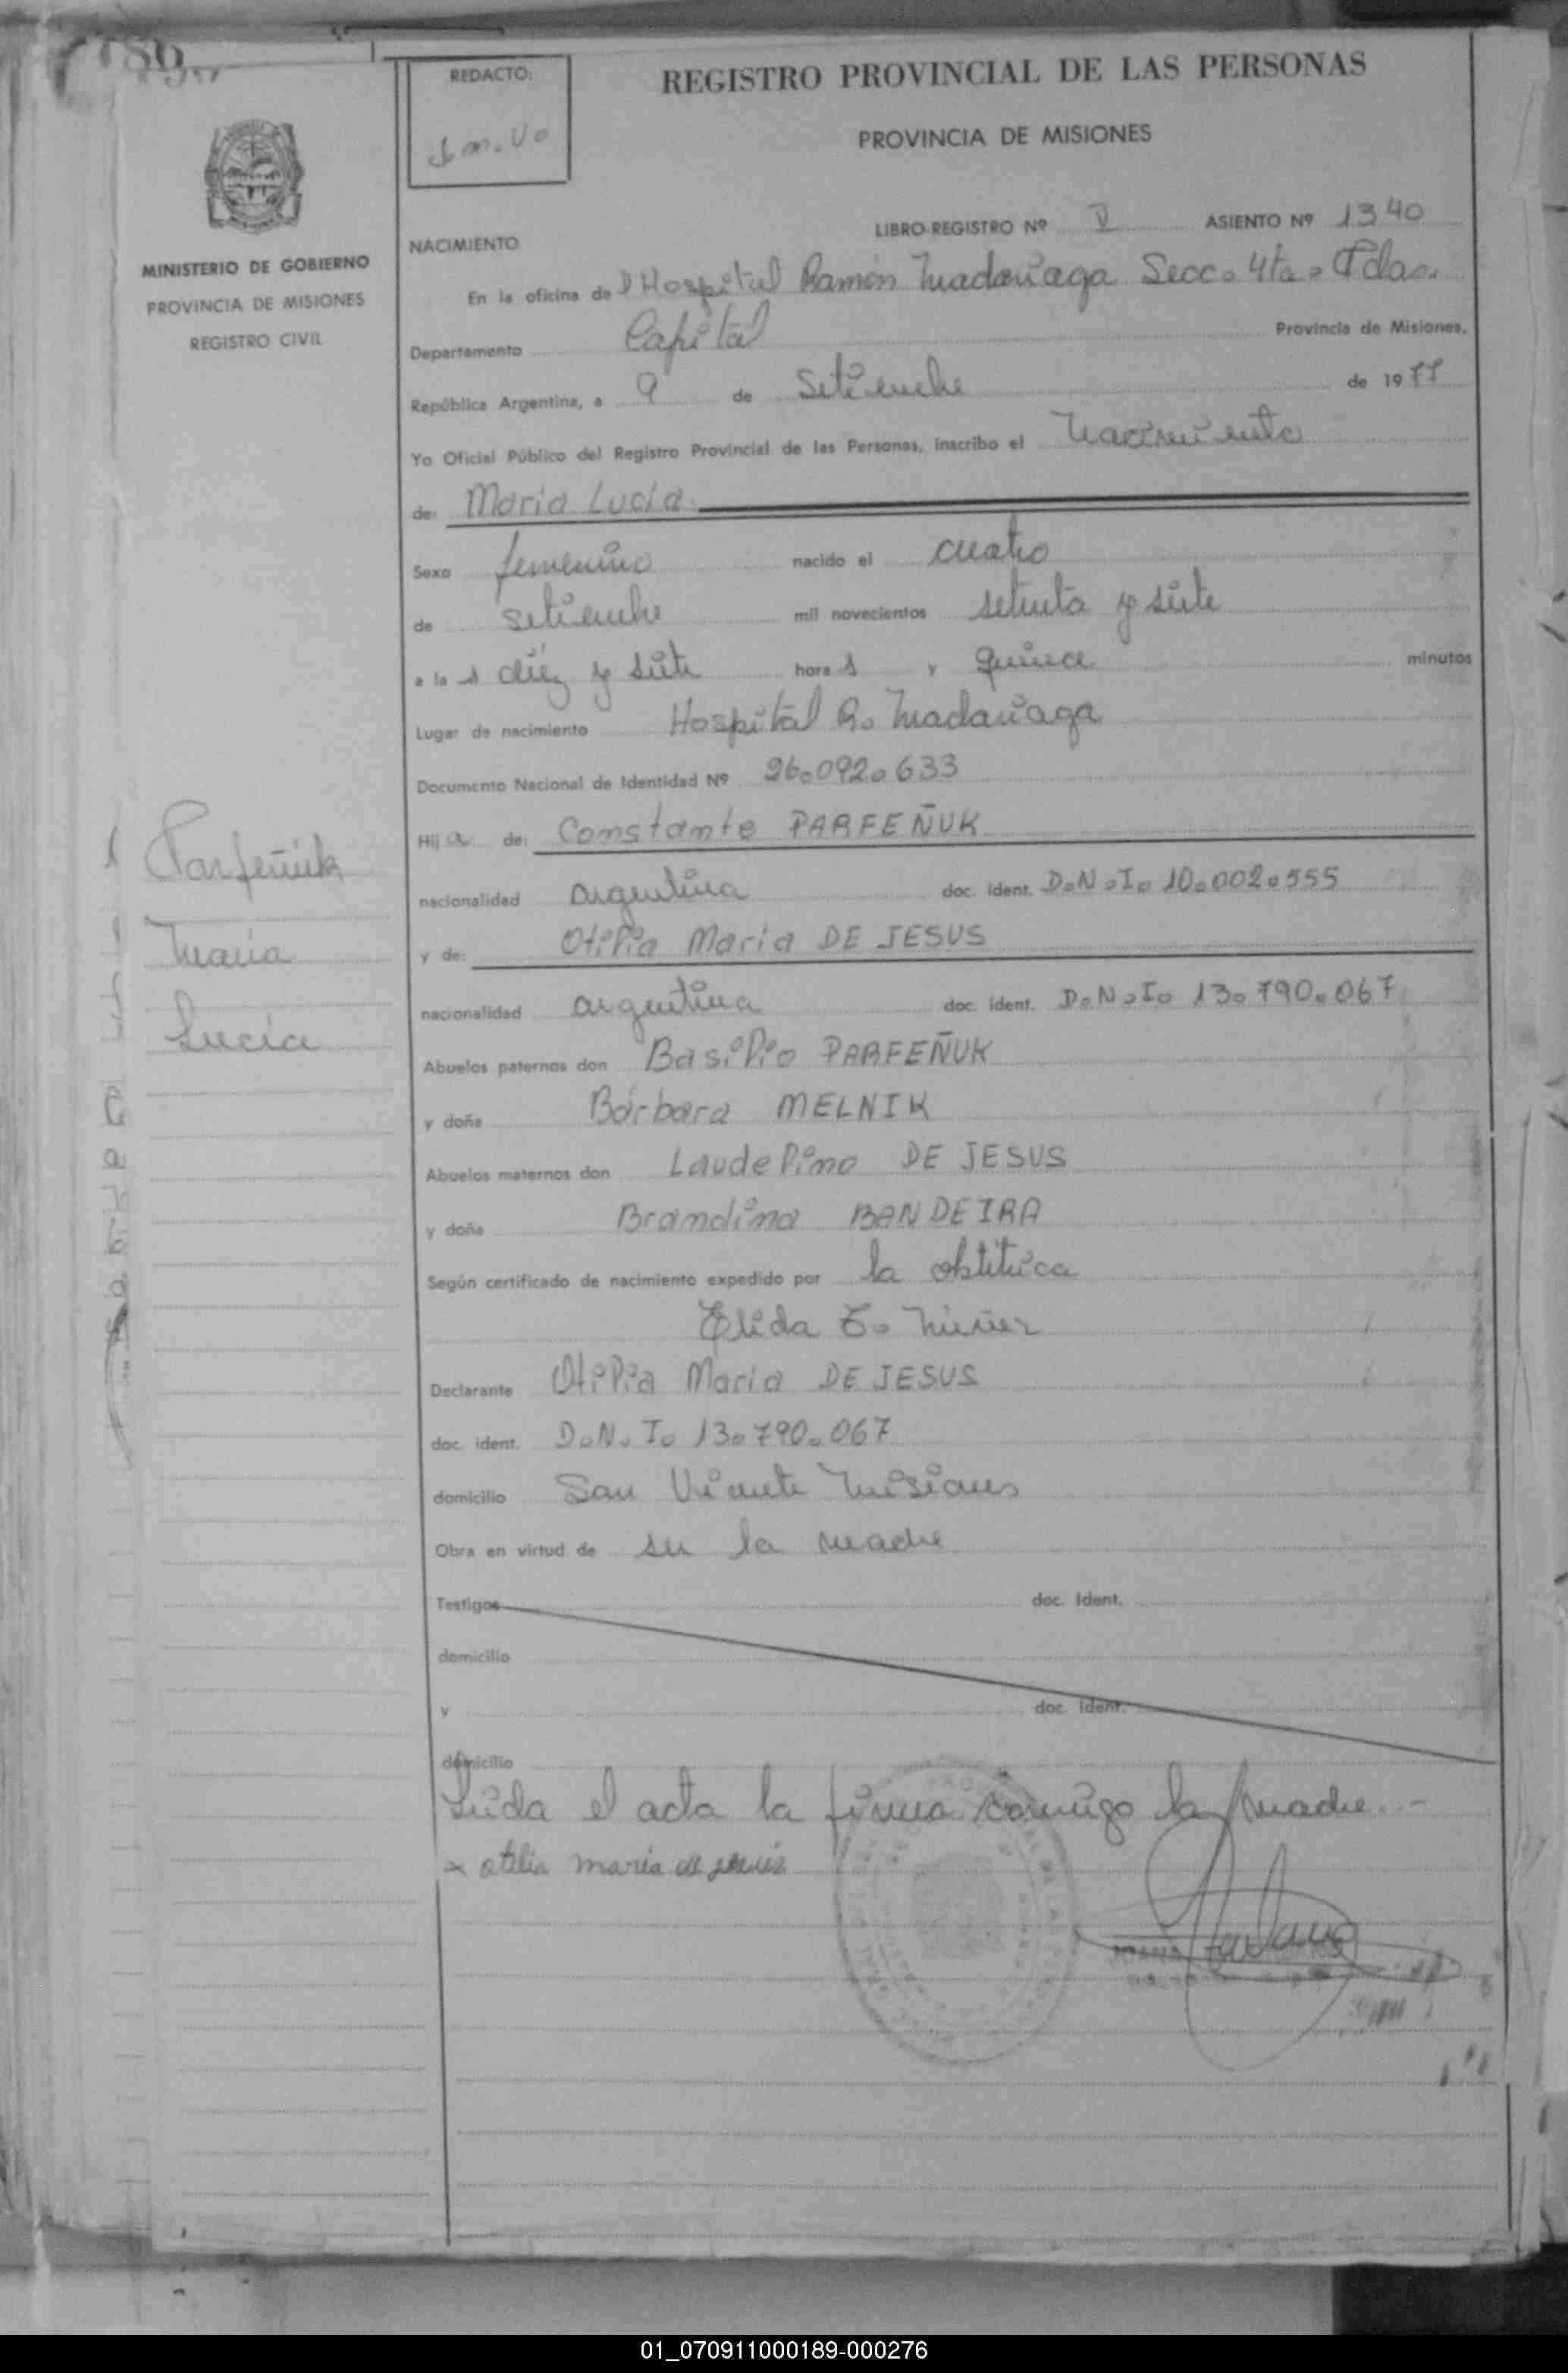 REDACTO:
REGISTRO PROVINCIAL DE LAS PERSONAS
PROVINCIA DE MISIONES
MINISTERIO DE GOBIERNO
PROVINCIA DE MISIONES
REGISTRO CIVIL
LIBRO-REGISTRO Nº V ASIENTO Nº 1340
NACIMIENTO
En la oficina de l Hospital Ramón Madariaga Secc. 4ta. Pdas.
Departamento Capital Provincia de Misiones,
República Argentina, a 9 de Setiembre de 1977
Yo Oficial Público del Registro Provincial de las Personas, inscribo el Nacimiento
de: Maria Lucía
Sexo femenino nacido el cuatro
de setiembre mil novecientos setenta y siete
a la s diez y siete hora s y quince minutos
Lugar de nacimiento Hospital R. Madariaga
Documento Nacional de Identidad Nº 26.092.633
Hij a de: Constante PARFEÑUK
nacionalidad argentina doc. ident. D.N.I. 10.002.555
y de: Otilia Maria DE JESUS
nacionalidad argentina doc. ident. D.N.I. 13.790.067
Abuelos paternos don Basilio PARFEÑUK
y doña Bárbara MELNIK
Abuelos maternos don Laudelino DE JESUS
y doña Brandina BANDEIRA
Según certificado de nacimiento expedido por la obstétrica
Elida E. Núñez
Declarante Otilia Maria DE JESUS
doc. ident. D.N.I. 13.790.067
domicilio San Vicente Misiones
Obra en virtud de ser la madre
Testigos doc. Ident.
domicilio
y doc. ident.
domicilio
Leída el acta la firma conmigo la madre.-
x otilia maría de jesús
Parfeñuk
María
Lucía
01_070911000189-000276